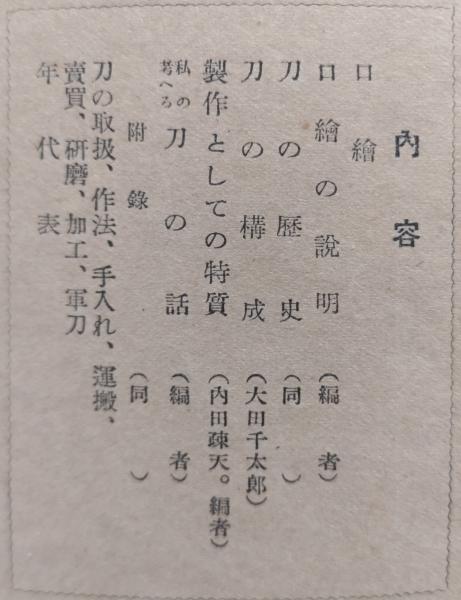 內容
口繪
口繪の說明（編者）
刀の歷史（同）
刀の構成（大田千太郎）
製作としての特質（內田疎天。編者）
私の考へる刀の話（編者）
附錄（同）
刀の取扱、作法、手入れ、運搬、
賣買、硏磨、加工、軍刀
年代表